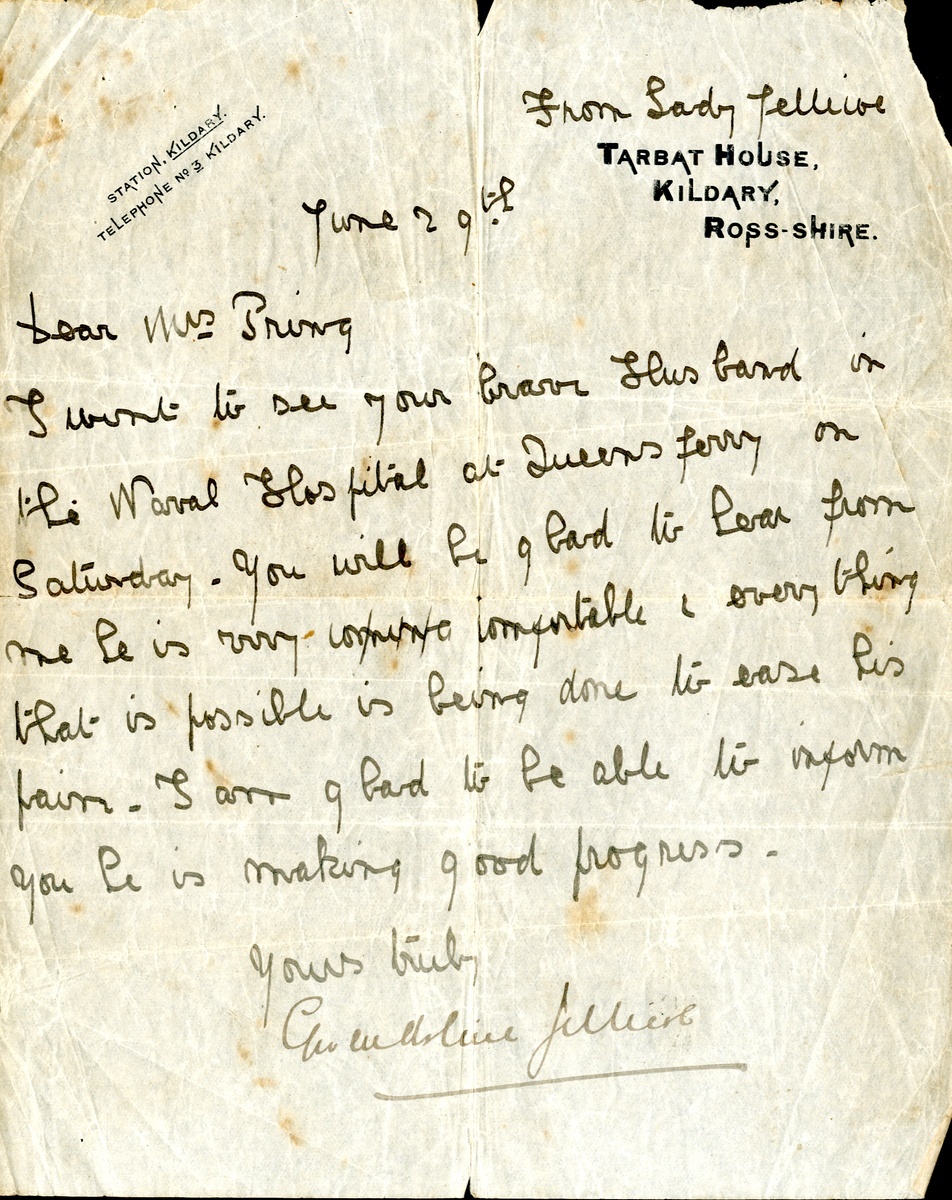 STATION, KILDARY.
TELEPHONE Nº 3 KILDARY.
From Lady Jellicoe
TARBAT HOUSE,
KILDARY,
ROSS-SHIRE.
June 29th
Dear Mrs Pring
I went to see your brave Husband in
the Naval Hospital at Queensferry on
Saturday. You will be glad to hear from
me he is very comfortable & everything
that is possible is being done to ease his
pain. I am glad to be able to inform
you he is making good progress.
Yours truly
Gwendoline Jellicoe